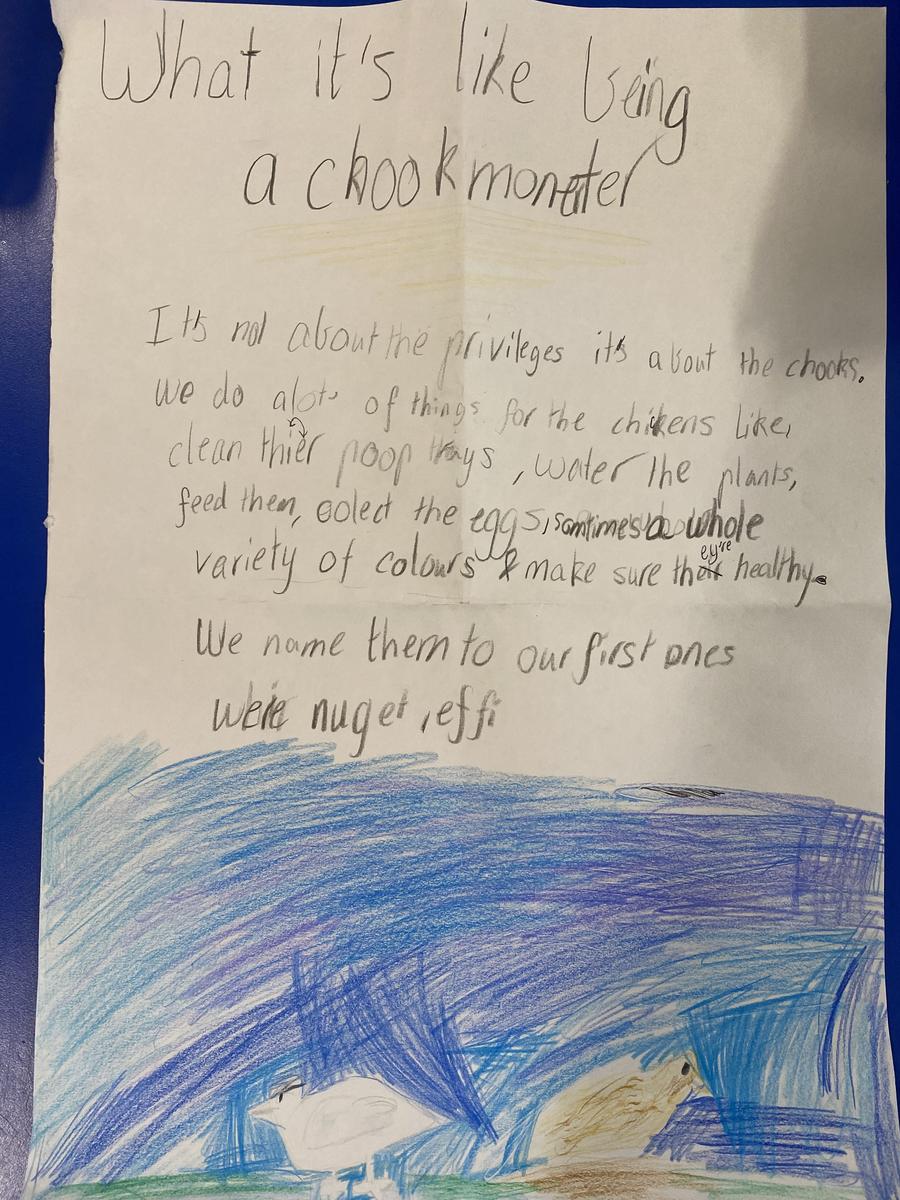 What it's like being
a chook monster
It's not about the privileges it's about the chooks.
We do alot of things for the chikens like,
clean thier poop trays, water the plants,
feed them, colect the eggs, somtimes a whole
variety of colours & make sure they're healthy.
We name them to our first ones
were nuget, effi